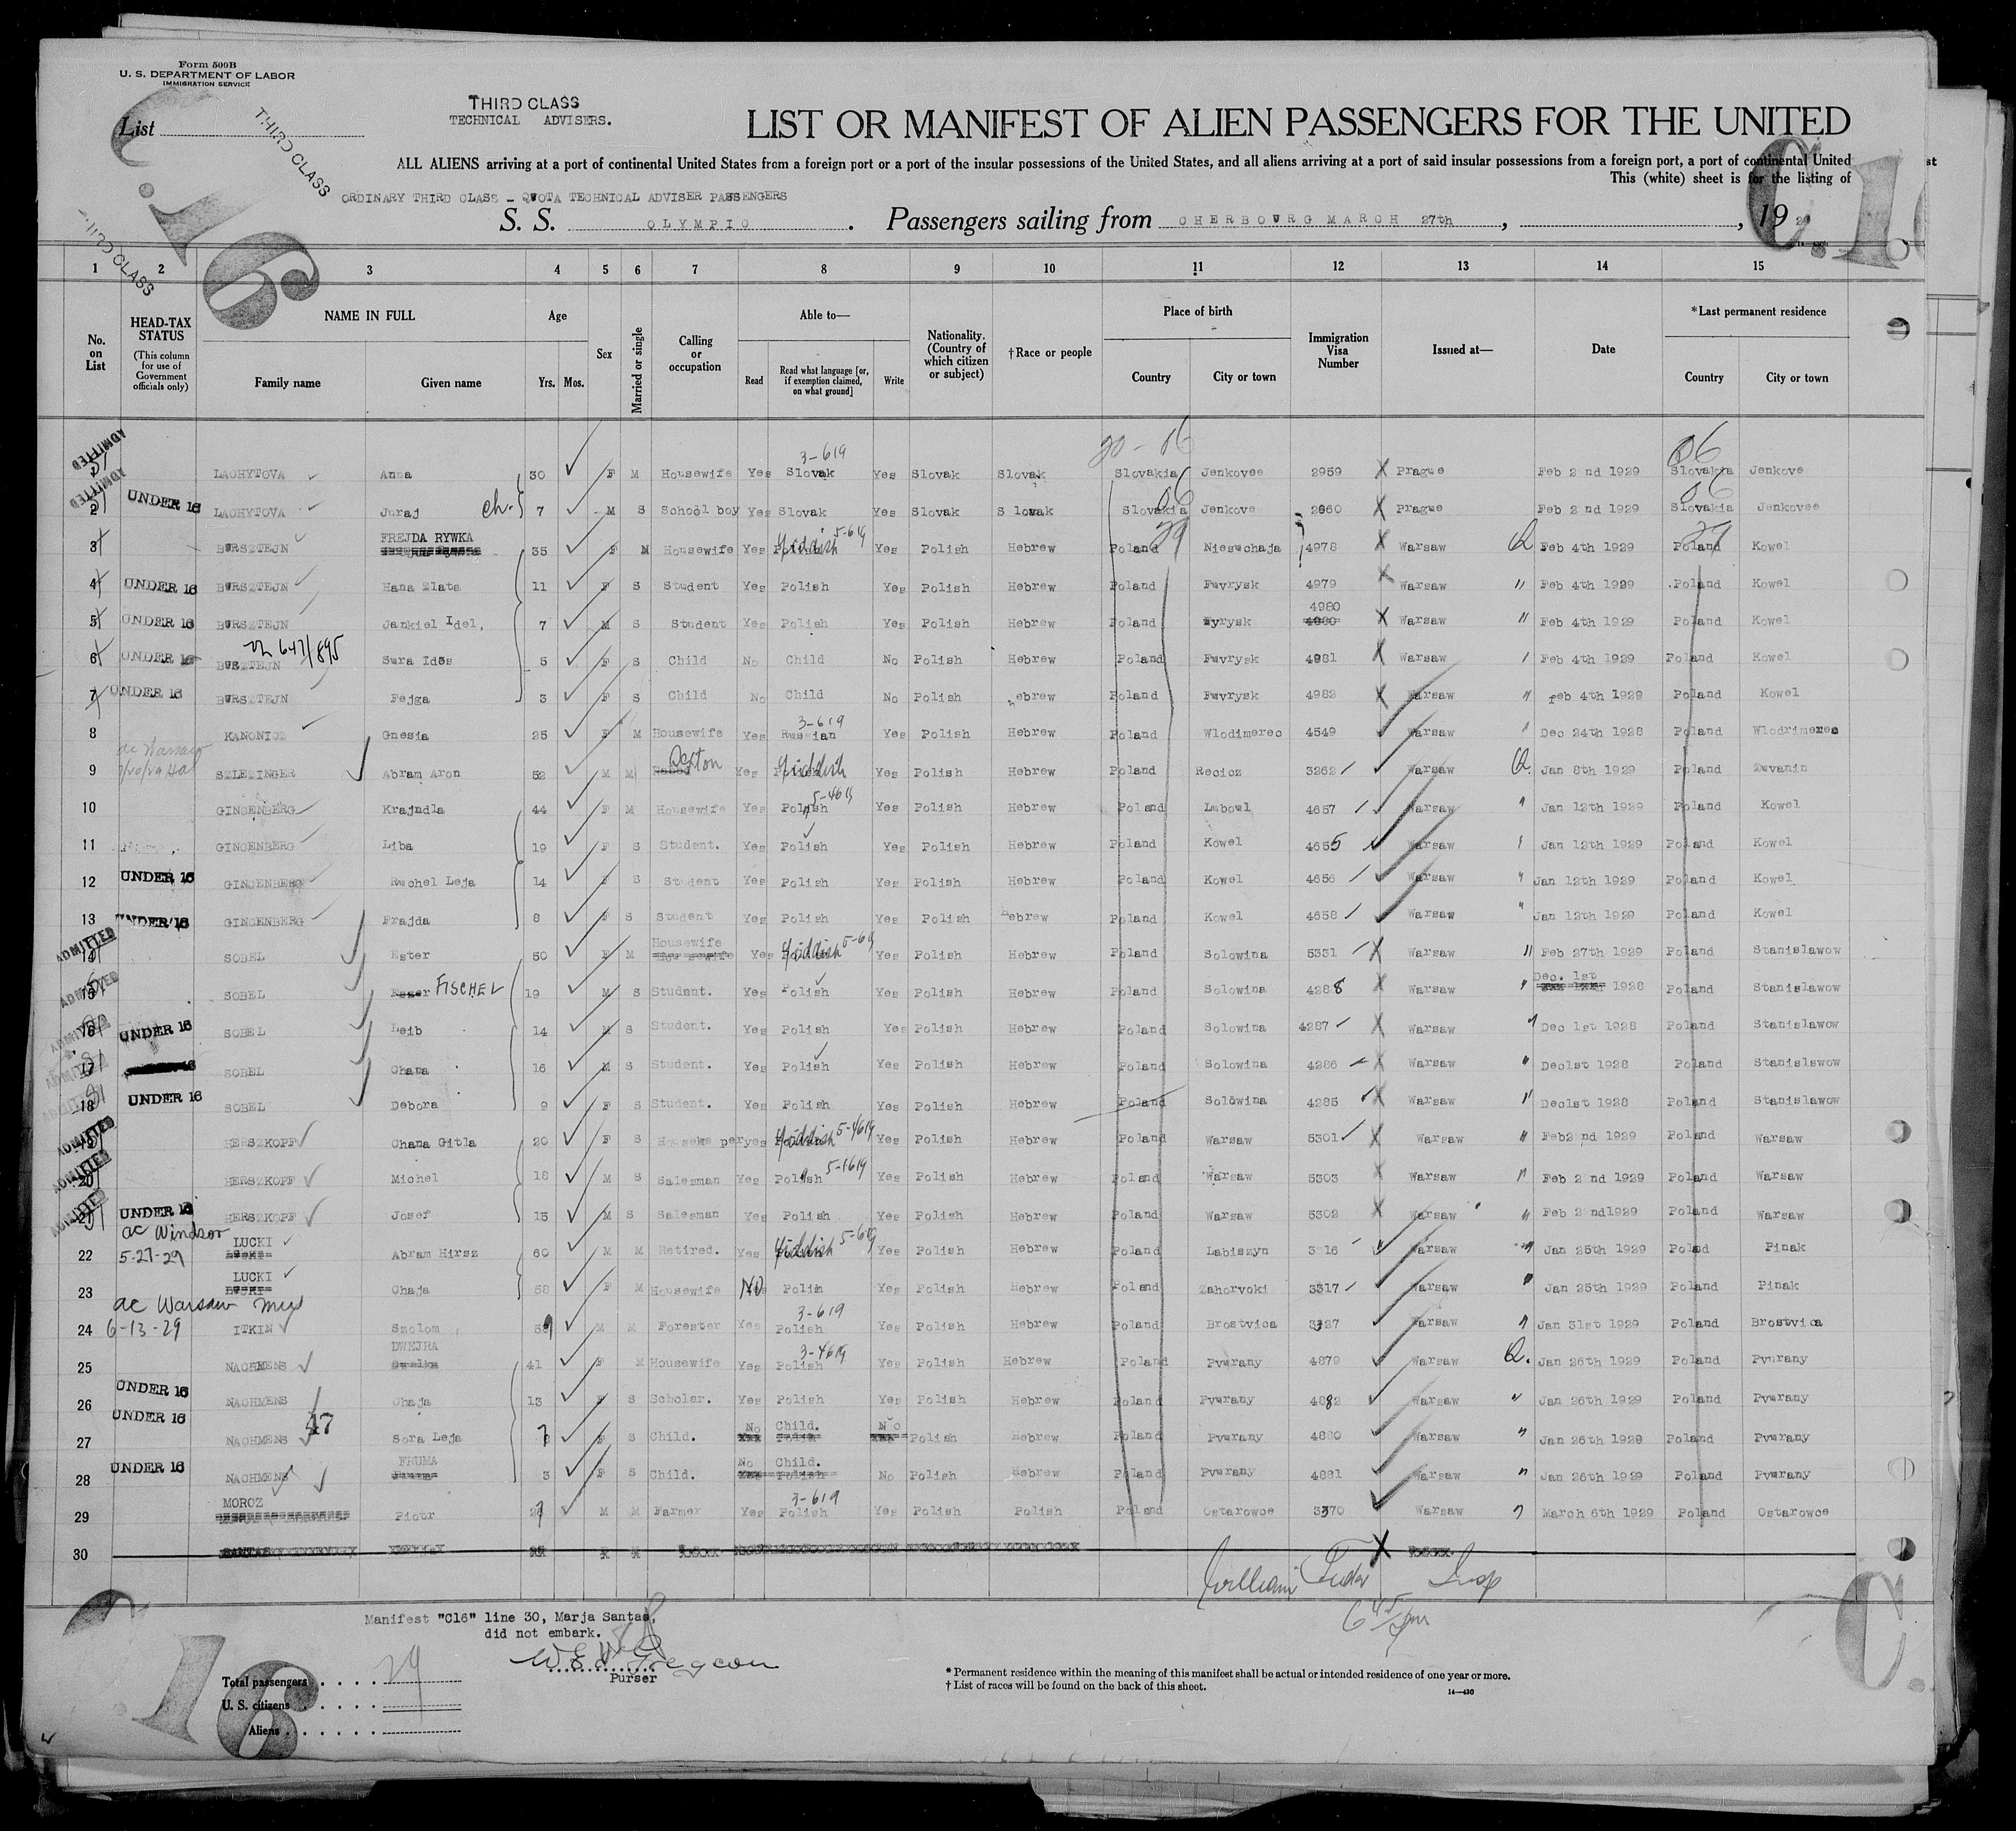 Form 500B
U. S. DEPARTMENT OF LABOR
IMMIGRATION SERVICE
List
THIRD CLASS
THIRD CLASS
TECHNICAL ADVISERS.
LIST OR MANIFEST OF ALIEN PASSENGERS FOR THE UNITED
ALL ALIENS arriving at a port of continental United States from a foreign port or a port of the insular possessions of the United States, and all aliens arriving at a port of said insular possessions from a foreign port, a port of continental United
This (white) sheet is for the listing of
ORDINARY THIRD CLASS - QUOTA TECHNICAL ADVISER PASSENGERS
S. S. OLYMPIC. Passengers sailing from CHERBOURG MARCH 27th, , 19 29
C.16
1 2 3 4 5 6 7 8 9 10 11 12 13 14 15
No. on List
HEAD-TAX STATUS (This column for use of Government officials only)
NAME IN FULL Family name Given name
Age Yrs. Mos.
Sex
Married or single
Calling or occupation
Able to— Read Read what language [or, if exemption claimed, on what ground] Write
Nationality. (Country of which citizen or subject)
†Race or people
Place of birth Country City or town
Immigration Visa Number
Issued at—
Date
*Last permanent residence Country City or town
ADMITTED LACHYTOVA Anna 30 F M Housewife Yes Slovak 3-619 Yes Slovak Slovak Slovakia Jenkovee 2959 Prague Feb 2 nd 1929 Slovakia Jenkove
ADMITTED 2 UNDER 16 LACHYTOVA Juraj ch. 7 M S School boy Yes Slovak Yes Slovak Slovak Slovakia Jenkove 2960 Prague Feb 2 nd 1929 Slovakia Jenkovee
3 BURSZTEJN FREJDA RYWKA 35 F M Housewife Yes Yiddish 5-619 Yes Polish Hebrew Poland Nieswchaja 4978 Warsaw Feb 4th 1929 Poland Kowel
4 UNDER 16 BURSZTEJN Hana Zlata 11 F S Student Yes Polish Yes Polish Hebrew Poland Fwvrysk 4979 Warsaw " Feb 4th 1929 Poland Kowel
5 UNDER 16 BURSZTEJN Jankiel Idel, 7 M S Student Yes Polish Yes Polish Hebrew Poland 4980 Warsaw " Feb 4th 1929 Poland Kowel
6 UNDER 16 BURSZTEJN Sura Ides 5 F S Child No Child No Polish Hebrew Poland Fwvrysk 4981 Warsaw Feb 4th 1929 Poland Kowel
7 UNDER 16 BURSZTEJN Fejga 3 F S Child No Child No Polish Hebrew Poland Fwvrysk 4982 Warsaw " feb 4th 1929 Poland Kowel
8 KANONICZ Gnesia 25 F M Housewife Yes Russian 3-619 Yes Polish Hebrew Poland Wlodimerec 4549 Warsaw Dec 24th 1928 Poland Wlodrimerec
9 SZLEZINGER Abram Aron 52 M M Yes Yiddish Yes Polish Hebrew Poland Recicz 3262 Warsaw Jan 8th 1929 Poland Zwvanin
10 GINDENBERG Krajndla 44 F M Housewife Yes Polish 5-4619 Yes Polish Hebrew Poland Lubowl 4657 Warsaw " Jan 12th 1929 Poland Kowel
11 GINDENBERG Liba 19 F S Student. Yes Polish Yes Polish Hebrew Poland Kowel 4655 Warsaw Jan 12th 1929 Poland Kowel
12 UNDER 16 GINDENBERG Ruchel Leja 14 F S Student Yes Polish Yes Polish Hebrew Poland Kowel 4656 Warsaw " Jan 12th 1929 Poland Kowel
13 UNDER 16 GINDENBERG Frajda 8 F S Student Yes Polish Yes Polish Hebrew Poland Kowel 4658 Warsaw " Jan 12th 1929 Poland Kowel
ADMITTED 14 SOBEL Ester 50 F M Housewife Yes Yiddish 5-619 Yes Polish Hebrew Poland Solowina 5331 Warsaw " Feb 27th 1929 Poland Stanislawow
ADMITTED 15 SOBEL FISCHEL 19 M S Student. Yes Polish Yes Polish Hebrew Poland Solowina 4288 Warsaw " Dec. 1st 1928 Poland Stanislawow
ADMITTED 16 UNDER 16 SOBEL Leib 14 M S Student. Yes Polish Yes Polish Hebrew Poland Solowina 4287 Warsaw " Dec 1st 1928 Poland Stanislawow
ADMITTED 17 SOBEL Chana 16 M S Student. Yes Polish Yes Polish Hebrew Poland Solowina 4286 Warsaw " Dec1st 1928 Poland Stanislswow
18 UNDER 16 SOBEL Debora 9 F S Student. Yes Polish Yes Polish Hebrew Poland Solowina 4285 Warsaw " Dec1st 1928 Poland Stanislawow
ADMITTED 19 HERSZKOPF Chana Gitla 20 F S Houseke per yes Yiddish 5-4619 Yes Polish Hebrew Poland Warsaw 5301 Warsaw " Feb2 nd 1929 Poland Warsaw
ADMITTED 20 HERSZKOPF Michel 18 M S Salesman Yes Polish 5-1619 Yes Polish Hebrew Poland Warsaw 5303 Warsaw " Feb 2 nd 1929 Poland Warsaw
ADMITTED 21 UNDER 16 HERSZKOPF Josef 15 M S Salesman Yes Polish Yes Polish Hebrew Poland Warsaw 5302 Warsaw " Feb 2 nd1929 Poland Warsaw
ac Windsor
22 5-27-29 LUCKI Abram Hirsz 60 M M Retired. Yes Yiddish 5-619 Yes Polish Hebrew Poland Labiszyn 3316 Warsaw " Jan 25th 1929 Polad Pinak
23 LUCKI Chaja 58 F M Housewife No Polish Yes Polish Hebrew Poland Zahorvoki 3317 Warsaw " Jan 25th 1929 Poland Pinak
ac Warsaw
24 6-13-29 ITKIN Szolom M M Forester Yes Polish 3-619 Yes Polish Hebrew Poland Brostvica 3327 Warsaw " Jan 31st 1929 Poland Brostvica
25 NACHMENS DWEJRA 41 F M Housewife Yes Polish 3-4619 Yes Polish Hebrew Poland Pvurany 4879 Warsaw Jan 26th 1929 Poland Pvurany
26 UNDER 16 NACHMENS Chaja 13 F S Scholar. Yes Polish Yes Polish Hebrew Poland Pvurany 4882 Warsaw " Jan 26th 1929 Poland Pvurany
27 UNDER 16 NACHMENS 47 Sora Leja 7 F S Child. No Child. No Polish Hebrew Poland Pvurany 4880 Warsaw " Jan 26th 1929 Poland Pvurany
28 UNDER 16 NACHMENS FRUMA 3 F S Child. No Child. No Polish Hebrew Poland Pvurany 4881 Warsaw " Jan 26th 1929 Poland Pvurany
29 MOROZ Piotr M M Farmer Yes Polish 3-619 Yes Polish Polish Poland Ostarowce 3370 Warsaw " March 6th 1929 Poland Ostarowce
30
William Insp
6 45/pm
Manifest "C16" line 30, Marja Santas,
did not embark.
Purser
Total passengers 29
U. S. citizens
Aliens
* Permanent residence within the meaning of this manifest shall be actual or intended residence of one year or more.
† List of races will be found on the back of this sheet.
14—430